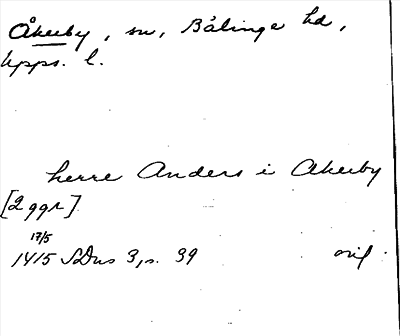 Åkerby, sn, Bälinge hd,
Upps. l.
herre Anders i Akerby
[2 ggr]
17/5
1415 SDns 3, s. 39 orig.